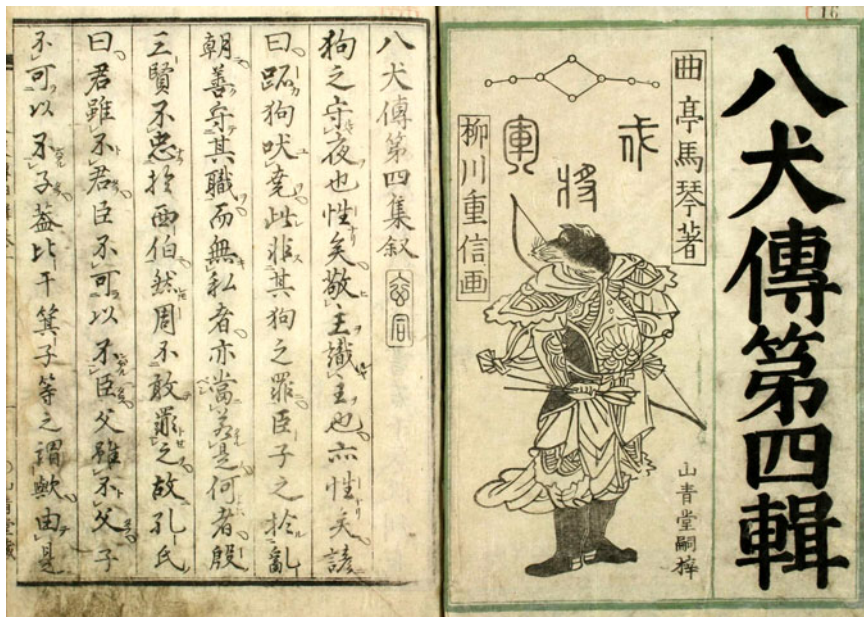 八犬傳第四輯
曲亭馬琴著
戌将軍
柳川重信画
山青堂嗣梓
16
八犬傳第四集叙
狗之守夜也性矣敬主識主也亦性矣諺
曰跖狗吠堯此非其狗之罪臣子之於亂
朝善守其職而無私者亦當若是何者殷
三賢不忠於西伯然周不敢罪之故孔氏
曰君雖不君臣不可以不臣父雖不父子
不可以不子蓋比干箕子等之謂歟由是